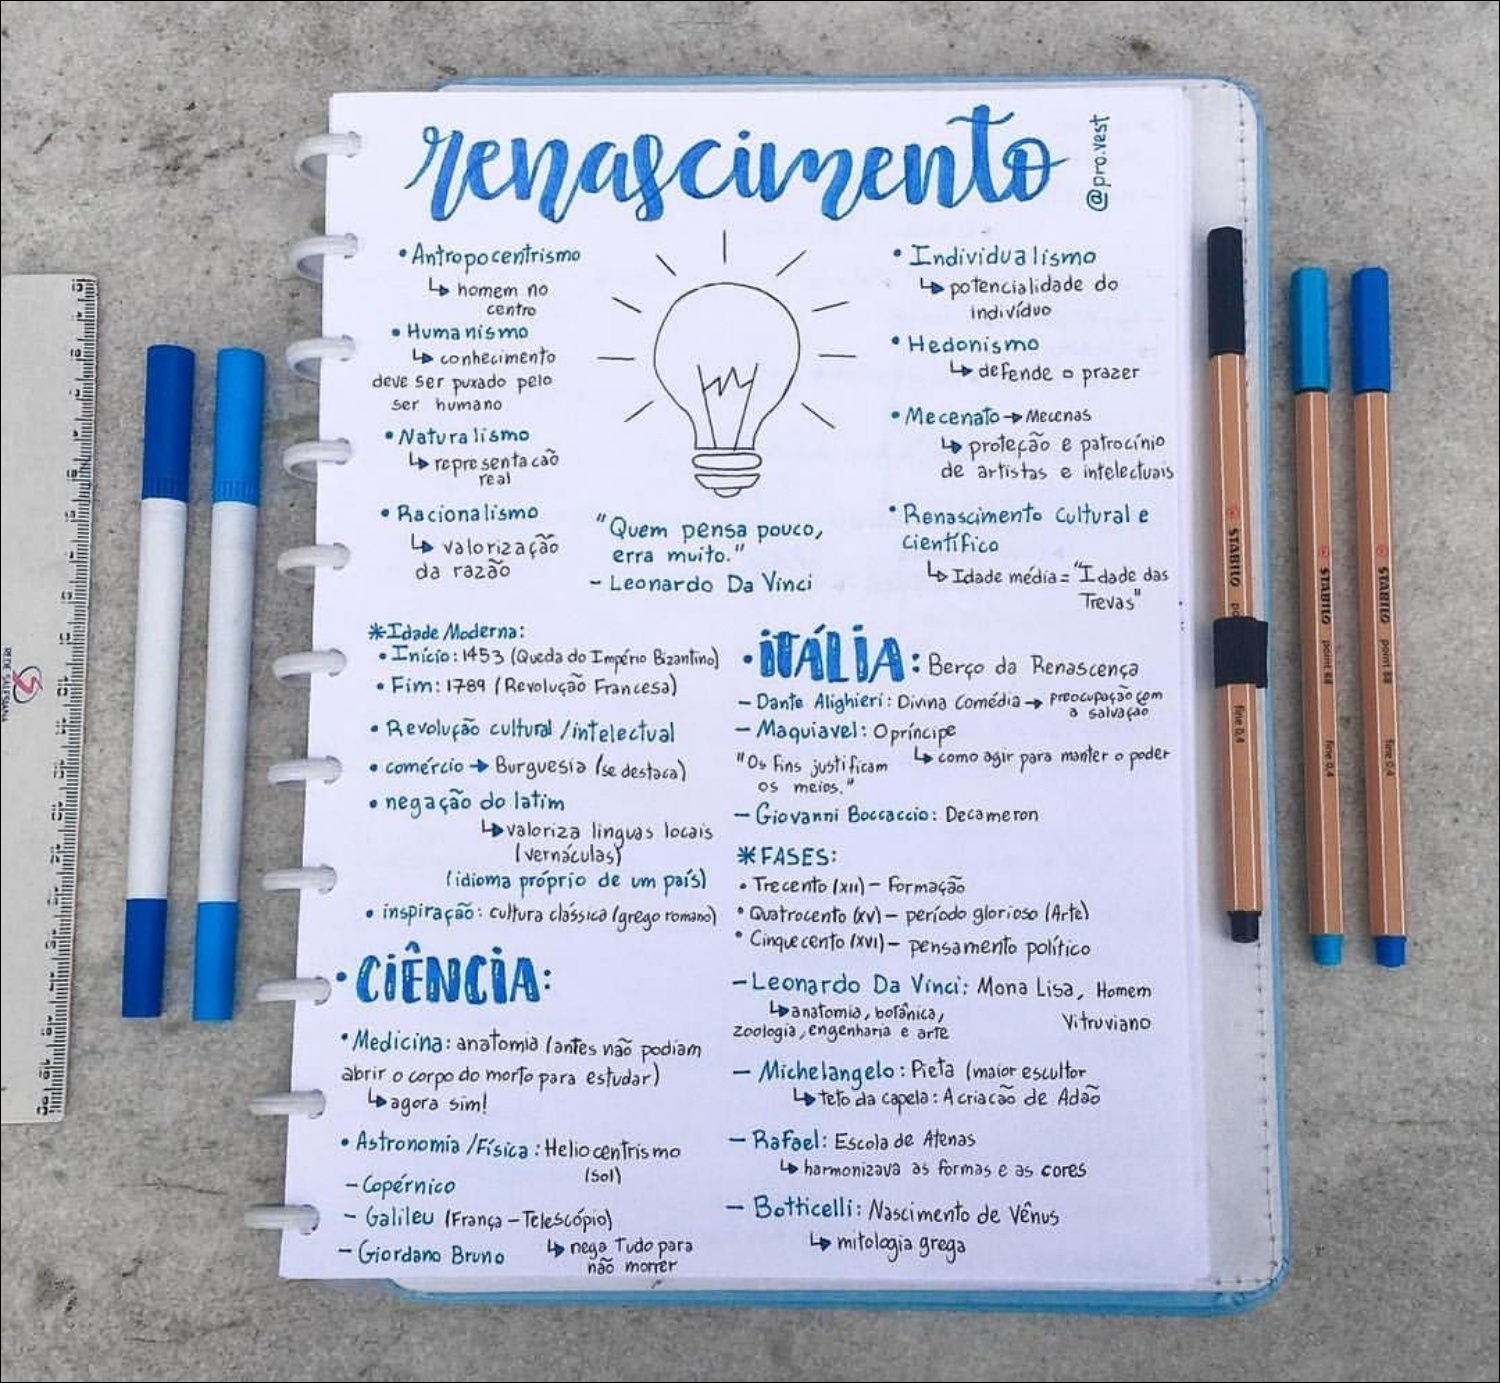 renascimento
@pro.vest
• Antropocentrismo
↳ homem no
centro
• Humanismo
↳ conhecimento
deve ser puxado pelo
ser humano
• Naturalismo
↳ representacão
real
• Racionalismo
↳ valorização
da razão
"Quem pensa pouco,
erra muito."
- Leonardo Da Vinci
• Individualismo
↳ potencialidade do
indivíduo
• Hedonismo
↳ defende o prazer
• Mecenato → Mecenas
↳ proteção e patrocínio
de artistas e intelectuais
• Renascimento Cultural e
científico
↳ Idade média = "Idade das
Trevas"
* Idade Moderna:
• Início: 1453 (Queda do Império Bizantino)
• Fim: 1789 (Revolução Francesa)
• Revolução cultural / intelectual
• comércio → Burguesia (se destaca)
• negação do latim
↳ valoriza linguas locais
(vernáculas)
(idioma próprio de um país)
• inspiração: cultura clássica (grego romano)
• CIÊNCIA:
• Medicina: anatomia (antes não podiam
abrir o corpo do morto para estudar)
↳ agora sim!
• Astronomia / Física: Heliocentrismo
(Sol)
- Copérnico
- Galileu (França - Telescópio)
- Giordano Bruno
↳ nega tudo para
não morrer
• ITÁLIA: Berço da Renascença
- Dante Alighieri: Divina Comédia → preocupação com
a salvação
- Maquiavel: O príncipe
"Os fins justificam
os meios."
↳ como agir para manter o poder
- Giovanni Boccaccio: Decameron
* FASES:
• Trecento (XII) - Formação
• Quatrocento (XV) - período glorioso (Arte)
• Cinquecento (XVI) - pensamento político
- Leonardo Da Vinci: Mona Lisa, Homem
Vitruviano
↳ anatomia, botânica,
zoologia, engenharia e arte
- Michelangelo: Pieta (maior escultor
↳ teto da capela: A criacão de Adão
- Rafael: Escola de Atenas
↳ harmonizava as formas e as cores
- Botticelli: Nascimento de Vênus
↳ mitologia grega
STABILO
fine 0,4
STABILO point 88 fine 0,4
STABILO point 88 fine 0,4
REDE SALESIANA